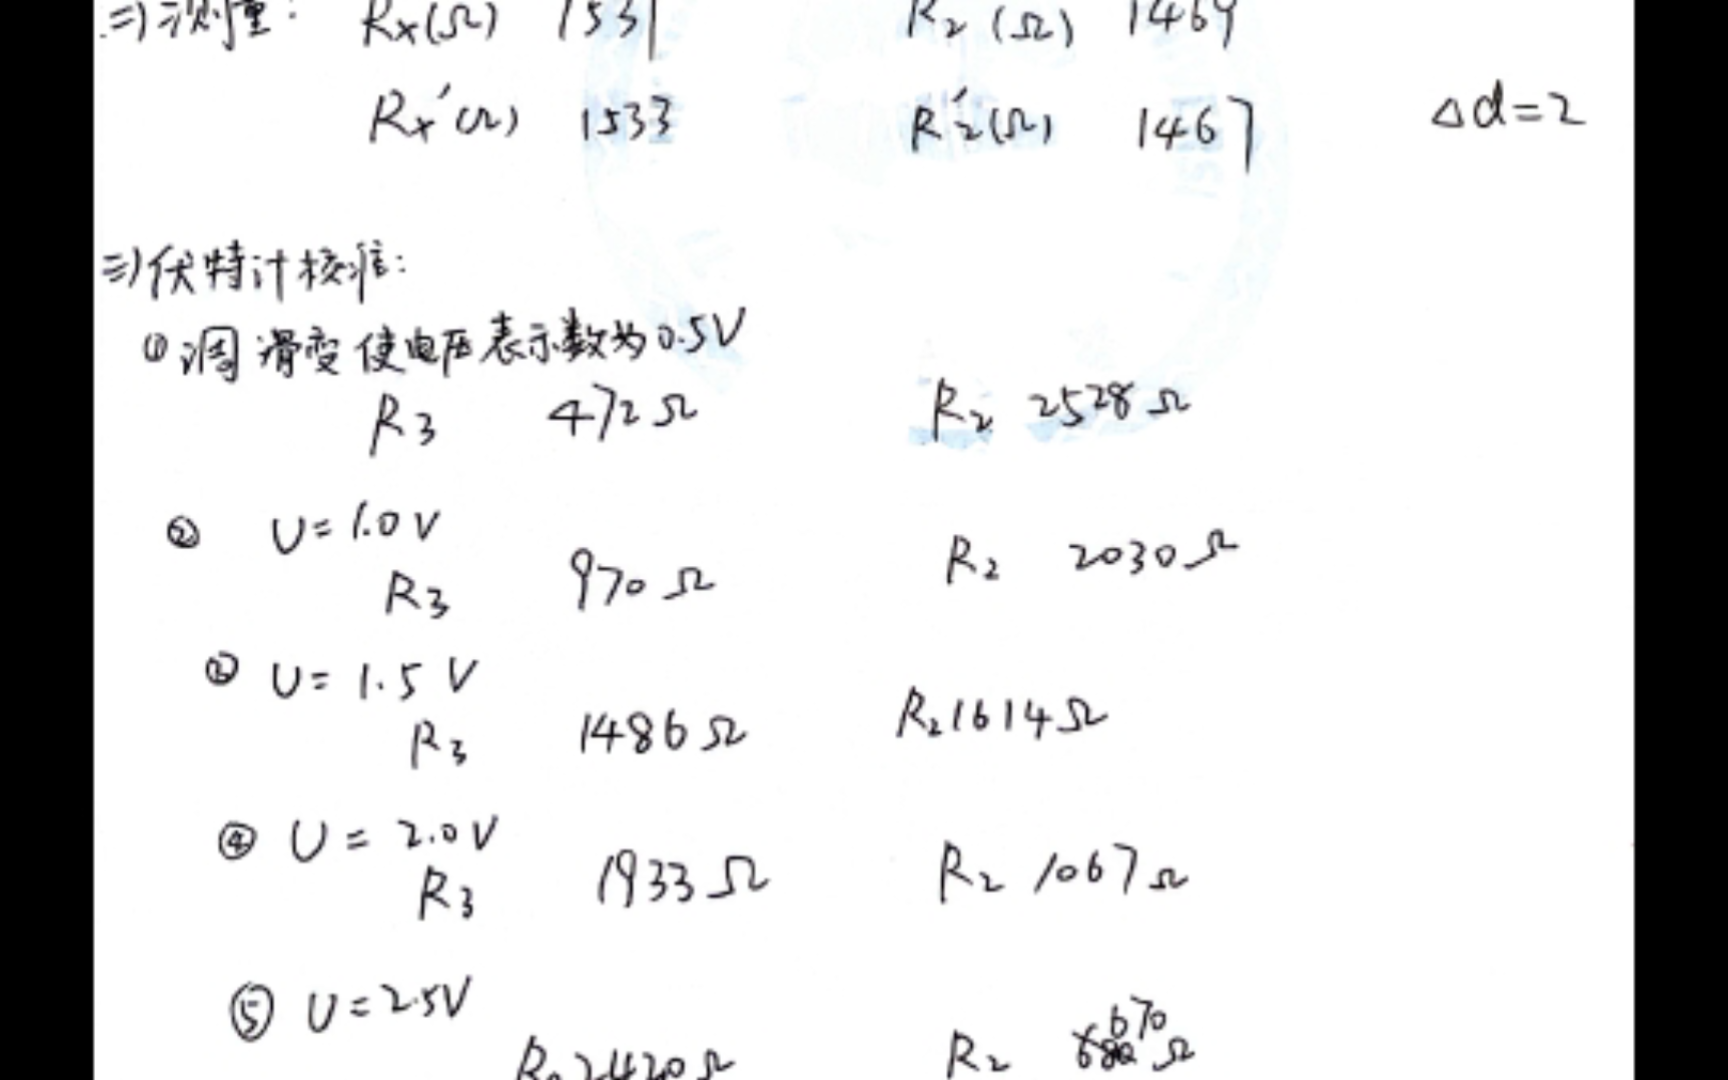 二)测量: Rx(Ω) 1531 R2(Ω) 1469
Rx'(Ω) 1533 R2'(Ω) 1467 Δd=2
三)伏特计校准:
① 调滑变使电压表示数为0.5V
R3 472Ω R2 2528Ω
② U=1.0V
R3 970Ω R2 2030Ω
③ U=1.5V
R3 1486Ω R2 1614Ω
④ U=2.0V
R3 1933Ω R2 1067Ω
⑤ U=2.5V
670
R3 2420Ω R2 Ω